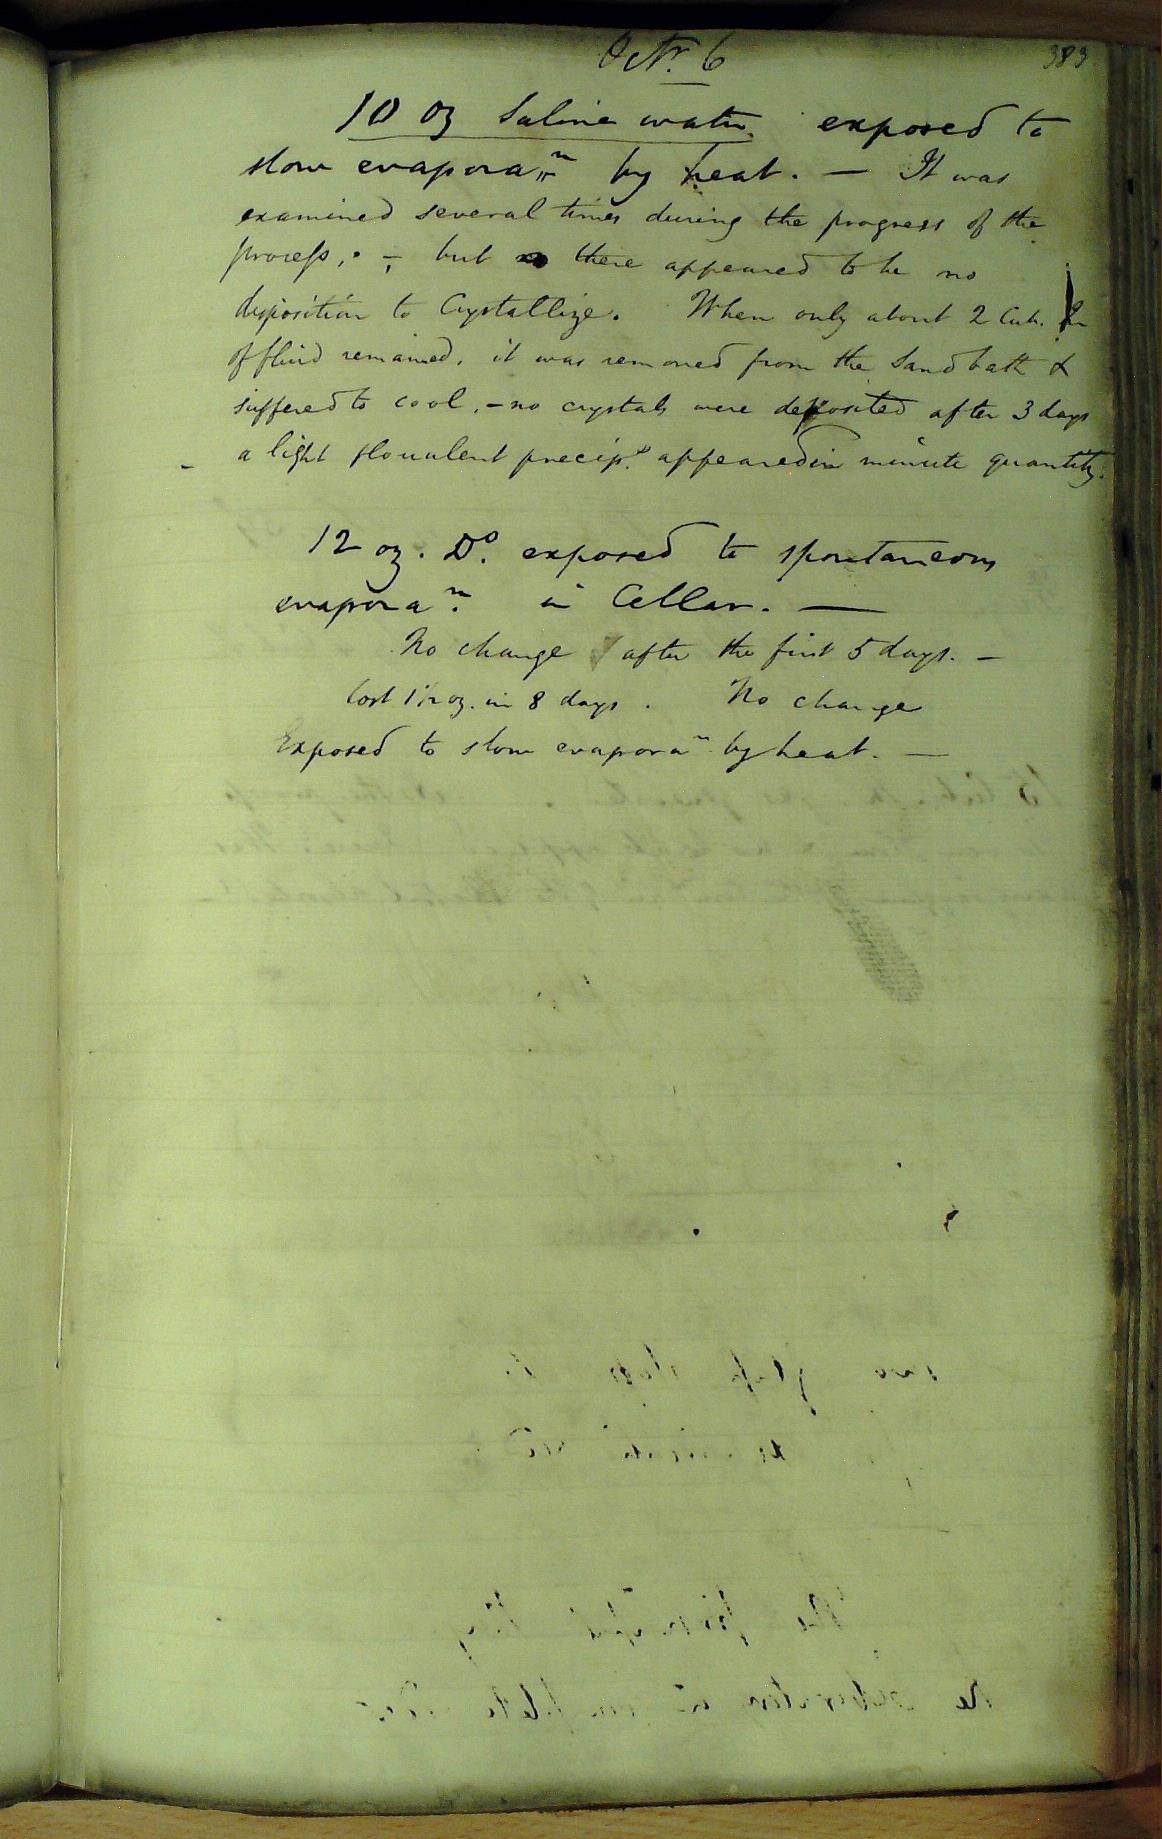 Octr. 6
383
10 oz Saline water exposed to
slow evaporan by heat. — It was
examined several times during the progress of the
process, . - ; but there appeared to be no
disposition to Crystallize. When only about 2 Cub. In
of fluid remained, it was removed from the Sand bath &
suffered to cool, - no crystals were deposited after 3 days
- a light flouulent precip. appeared in minute quantity.
12 oz. Do. exposed to spontaneous
evaporan. in Cellar. —
No change after the first 5 days. -
lost 1½ oz. in 8 days. No change
Exposed to slow evaporan by heat. —